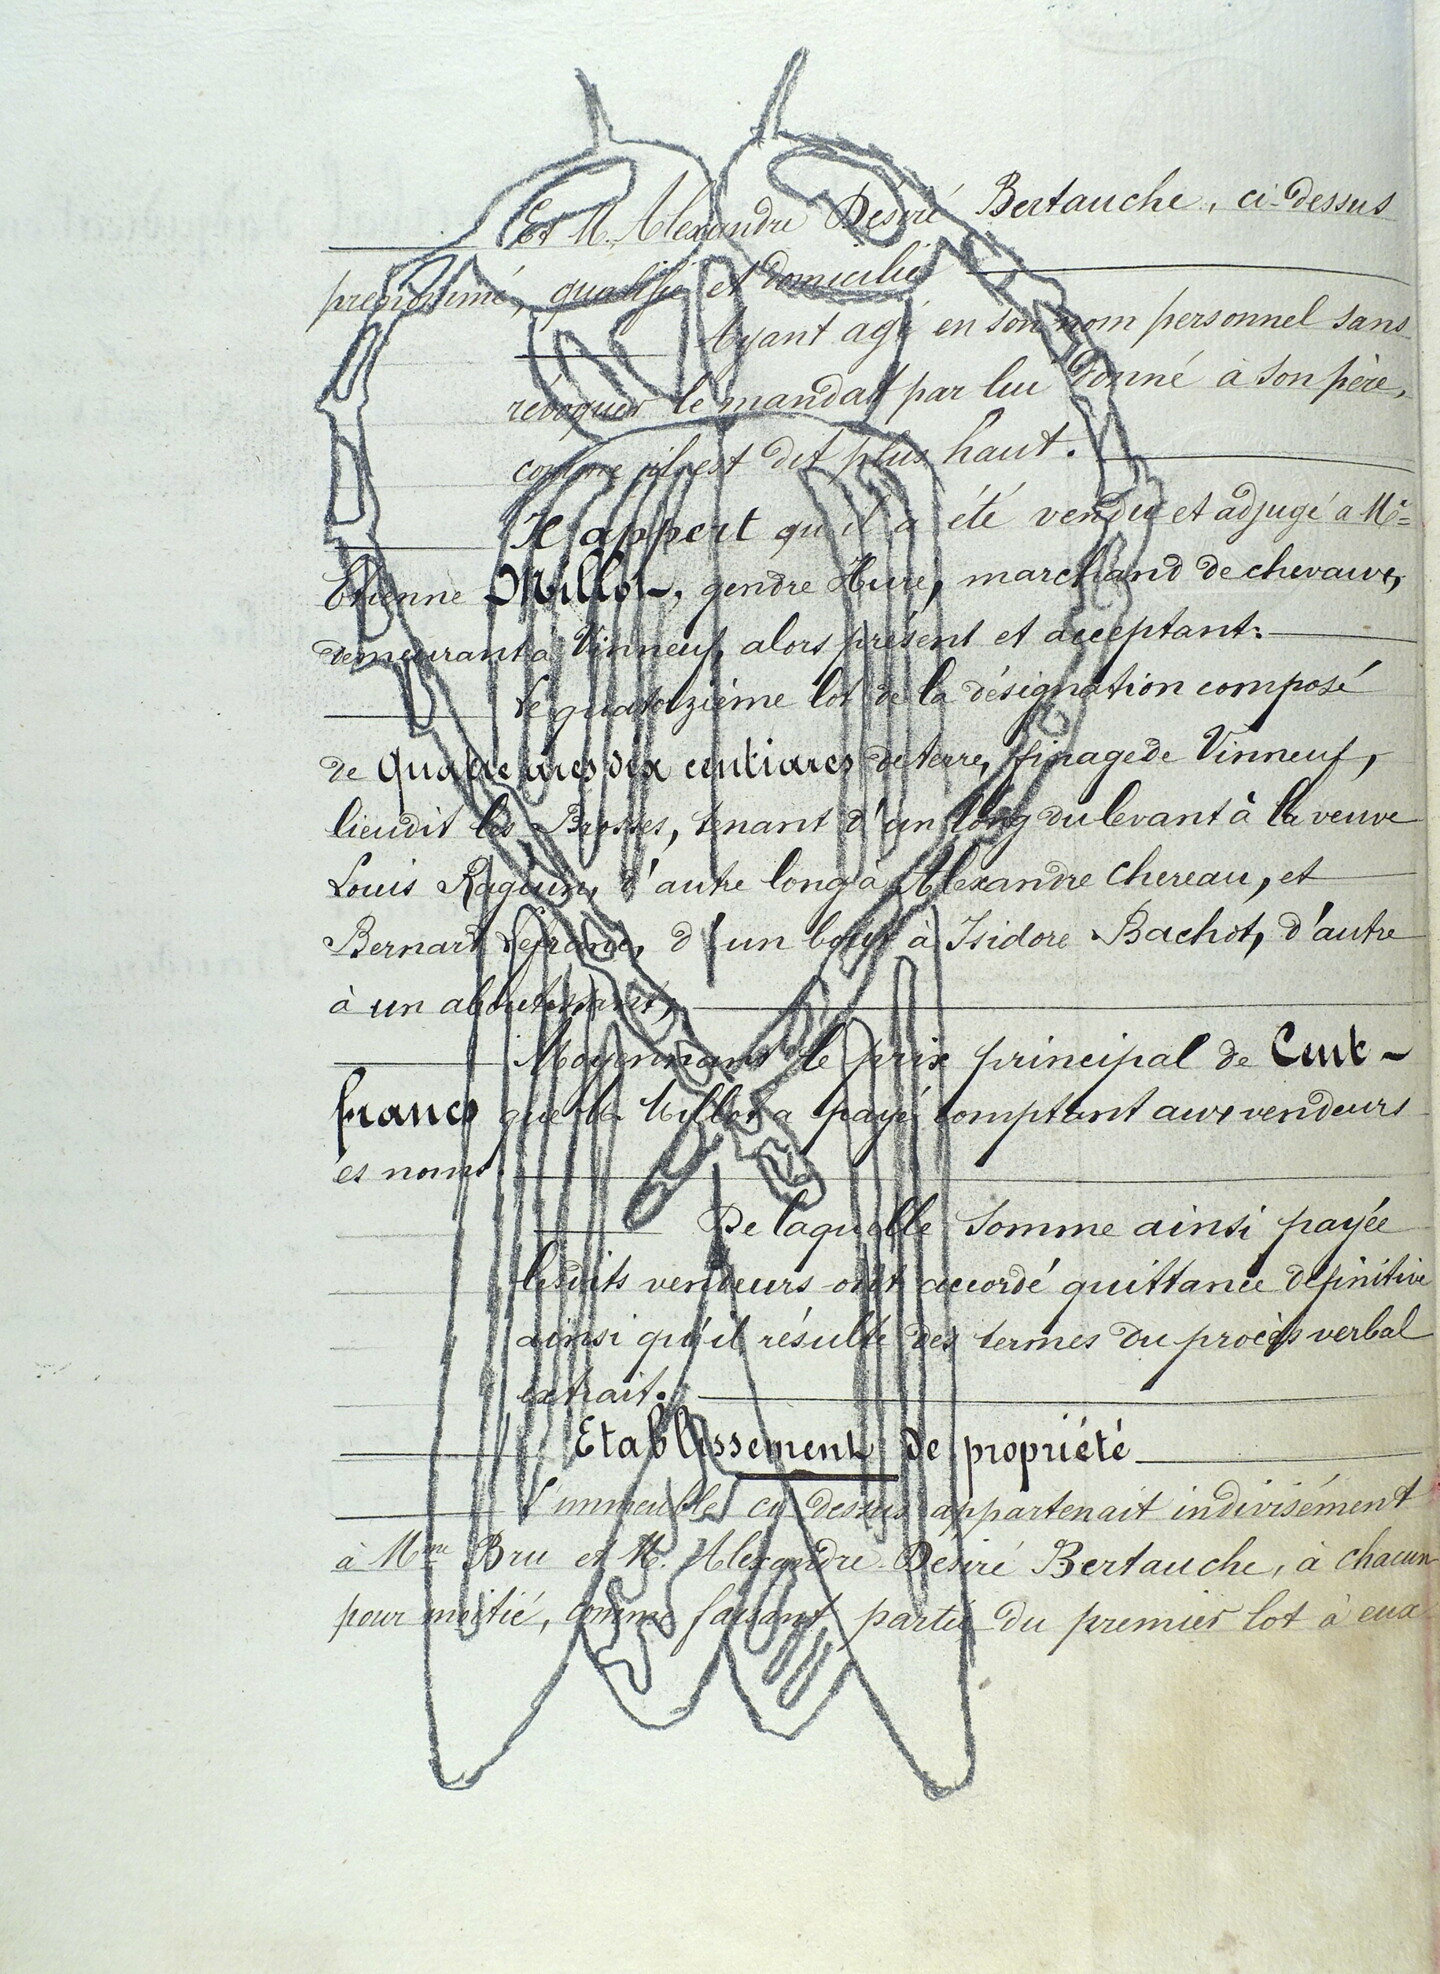 Et M. Alexandre Désiré Bertauche, ci-dessus
prénommé, qualifié et domicilié
Ayant agi en son nom personnel sans
révoquer le mandat par lui donné à son père,
comme il est dit plus haut.
Il appert qu'il a été vendu et adjugé à Mr
Etienne Millot, gendre Huré, marchand de chevaux,
demeurant à Vinneuf, alors présent et acceptant:
Le quatorzième lot de la désignation composé
de quatre ares dix centiares de terre, finage de Vinneuf,
lieudit les Brosses, tenant d'un long du levant à la veuve
Louis Raguin, d'autre long à Alexandre Chereau, et
Bernard Lefranc, d'un bout à Isidore Bachot, d'autre
à un aboutissant,
Moyennant le prix principal de Cent-
francs que Mr Millot a payé comptant aux vendeurs
ès noms.
De laquelle somme ainsi payée
lesdits vendeurs ont accordé quittance définitive
ainsi qu'il résulte des termes du procès verbal
extrait.
Etablissement de propriété
L'immeuble ci dessus appartenait indivisément
à Mme Bru et M. Alexandre Désiré Bertauche, à chacun
pour moitié, comme faisant partie du premier lot à eux